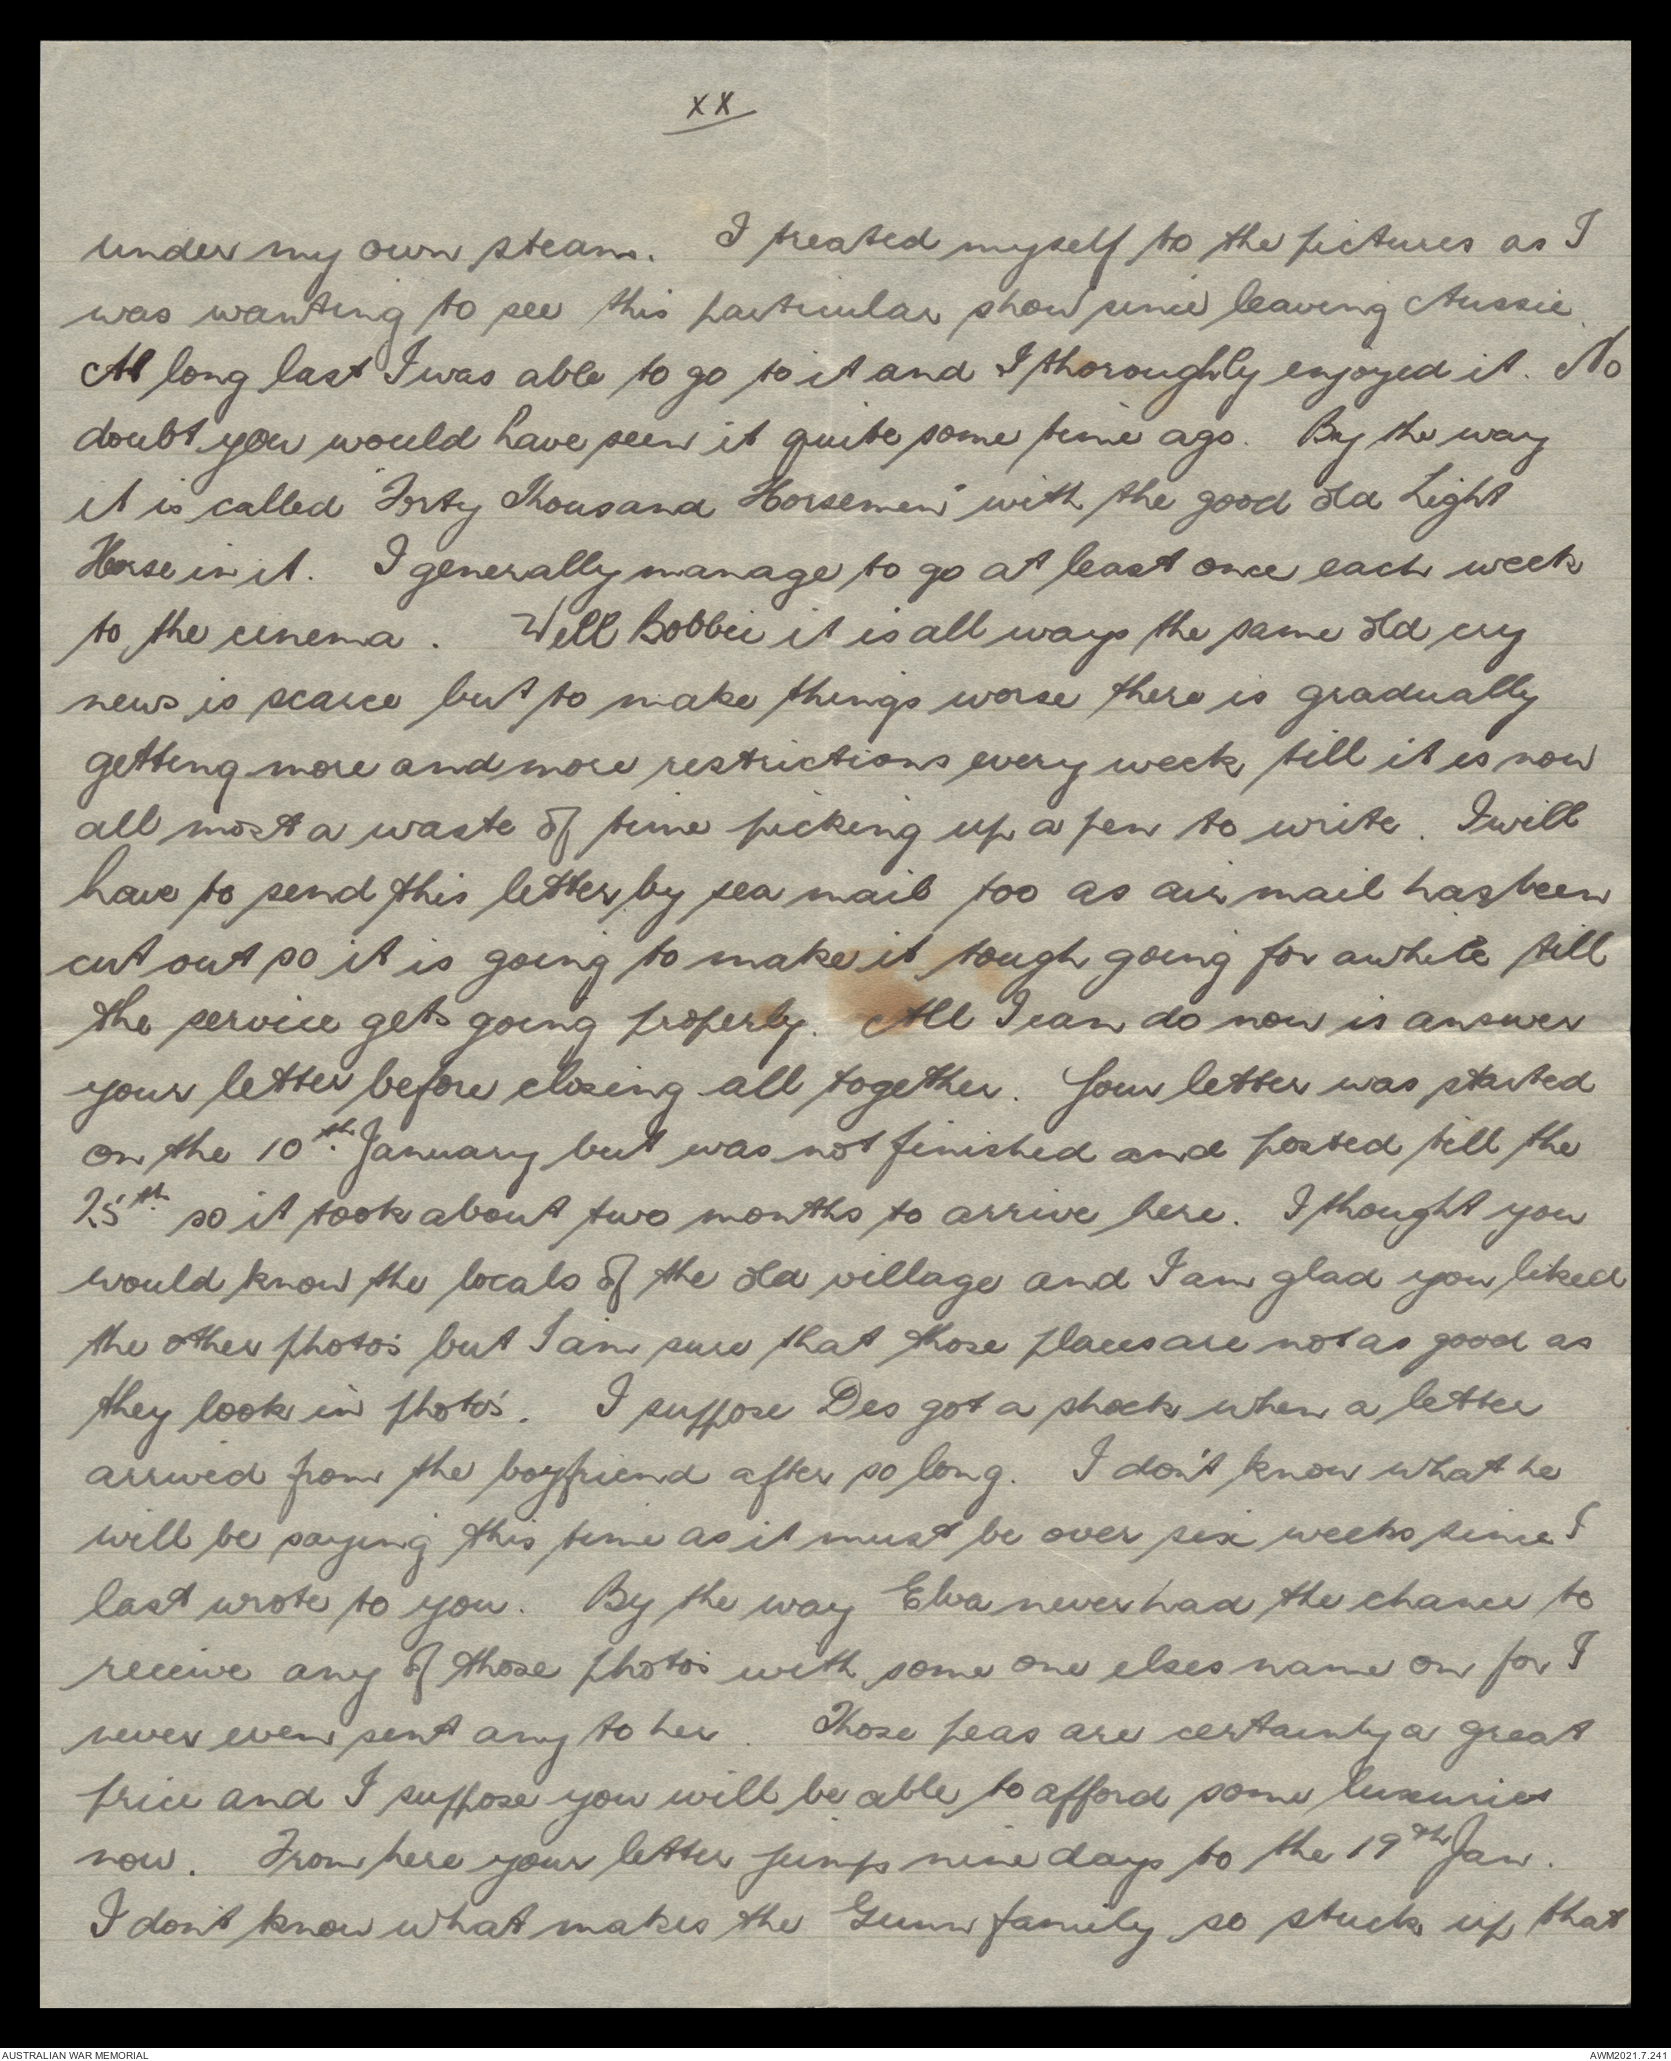 XX
under my own steam. I treated myself to the pictures as I
was wanting to see this particular show since leaving Aussie.
At long last I was able to go to it and I thoroughly enjoyed it. No
doubt you would have seen it quite some time ago. By the way
it is called "Forty Thousand Horsemen" with the good old Light
Horse in it. I generally manage to go at least once each week
to the cinema. Well Bobbie it is all ways the same old cry
news is scarce but to make things worse there is gradually
getting more and more restrictions every week till it is now
all most a waste of time picking up a pen to write. I will
have to send this letter by sea mail too as air mail has been
cut out so it is going to make it tough going for awhile till
the service gets going properly. All I can do now is answer
your letter before closing all together. Your letter was started
on the 10th. January but was not finished and posted till the
25th. so it took about two months to arrive here. I thought you
would know the locals of the old village and I am glad you liked
the other photo's but I am sure that those places are not as good as
they look in photo's. I suppose Des got a shock when a letter
arrived from the boyfriend after so long. I don't know what he
will be saying this time as it must be over six weeks since I
last wrote to you. By the way Elva never had the chance to
receive any of those photo's with some one elses name on for I
never even sent any to her. Those peas are certainly a great
price and I suppose you will be able to afford some luxuries
now. From here your letter jumps nine days to the 19th Jan.
I don't know what makes the Gunn family so stuck up that
AUSTRALIAN WAR MEMORIAL
AWM2021.7.241